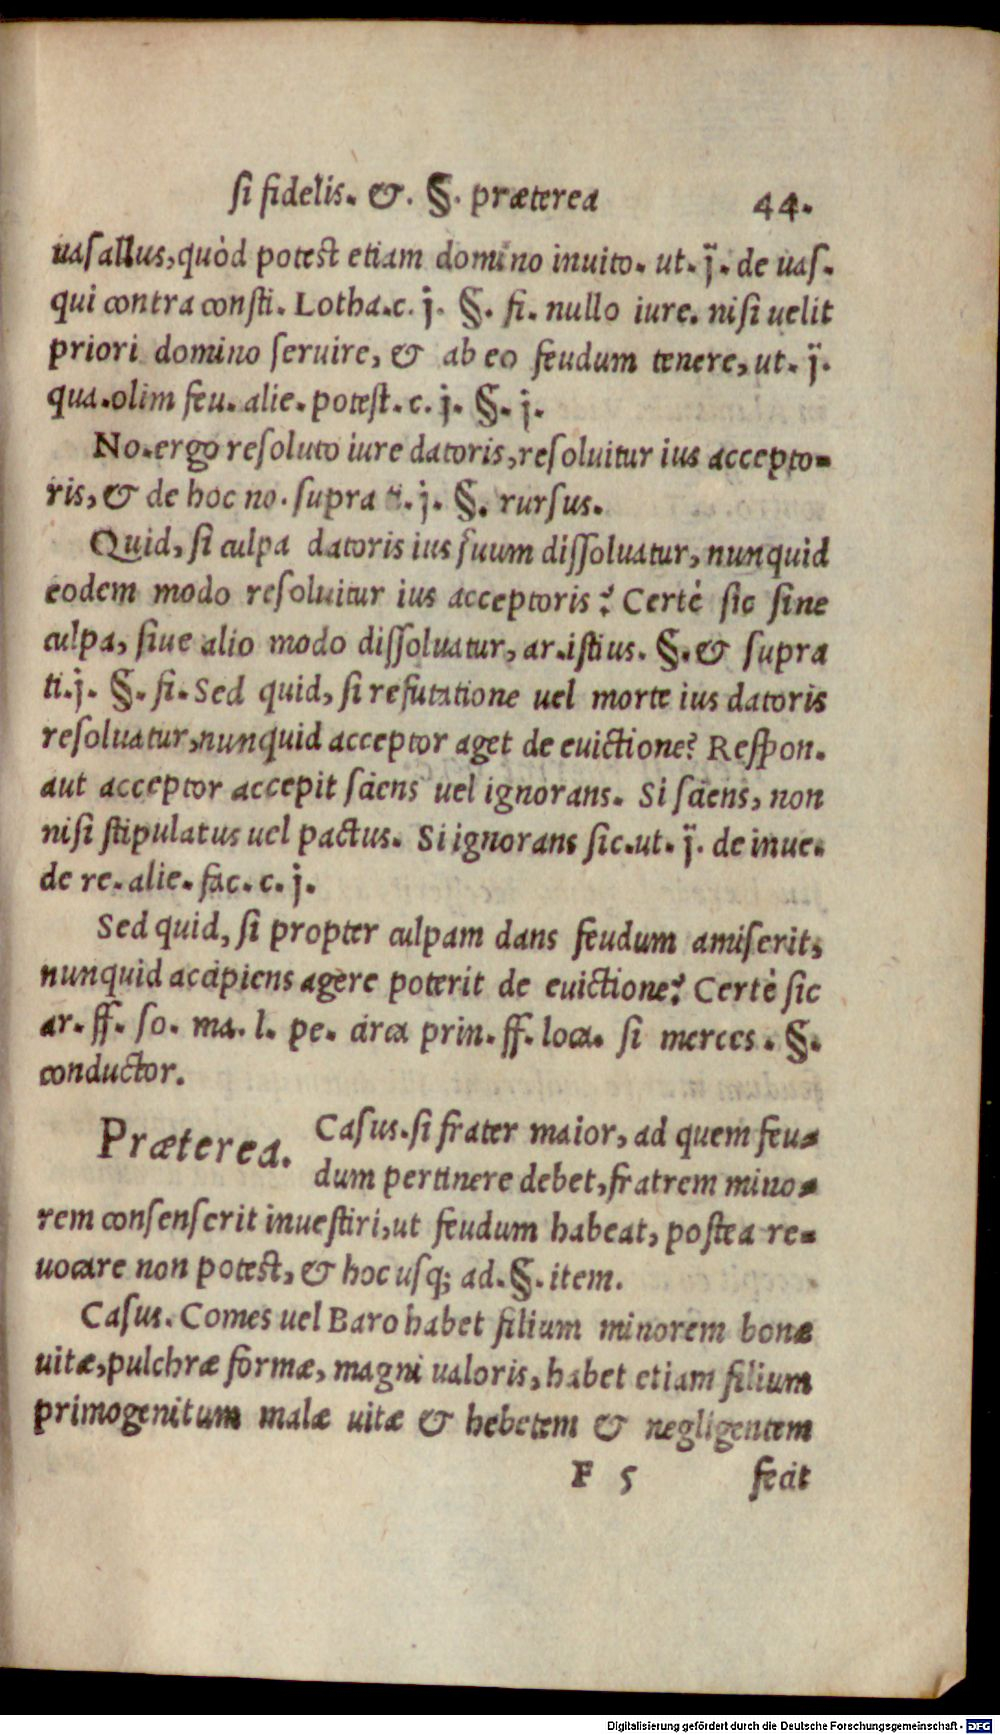 si fidelis. & . §. præterea 44.
uasallus, quòd potest etiam domino inuito. ut. j̈. de uas.
qui contra consti. Lotha.c. j. §. fi. nullo iure. nisi uelit
priori domino seruire, & ab eo feudum tenere, ut. j̈.
qua.olim feu. alie. potest. c. j. §. j.
No.ergo resoluto iure datoris, resoluitur ius accepto-
ris, & de hoc no. supra t. j. §. rursus.
Quid, si culpa datoris ius suum dissoluatur, nunquid
eodem modo resoluitur ius acceptoris? Certè sic sine
culpa, siue alio modo dissoluatur, ar.istius. §.& supra
ti.j. §. fi. Sed quid, si refutatione uel morte ius datoris
resoluatur, nunquid acceptor aget de euictione? Respon.
aut acceptor accepit sciens uel ignorans. Si sciens, non
nisi stipulatus uel pactus. Si ignorans sic.ut. j̈. de inue.
de re. alie. fac. c. j.
Sed quid, si propter culpam dans feudum amiserit,
nunquid accipiens agere poterit de euictione? Certè sic
ar. ff. so. ma. l. pe. circa prin. ff. loca. si merces. §.
conductor.
Præterea. Casus. si frater maior, ad quem feu-
dum pertinere debet, fratrem mino-
rem consenserit inuestiri, ut feudum habeat, postea re-
uocare non potest, & hoc usq; ad. §. item.
Casus. Comes uel Baro habet filium minorem bonæ
uitæ, pulchræ formæ, magni ualoris, habet etiam filium
primogenitum malæ uitæ & hebetem & negligentem
F 5 fecit
Digitalisierung gefördert durch die Deutsche Forschungsgemeinschaft - DFG